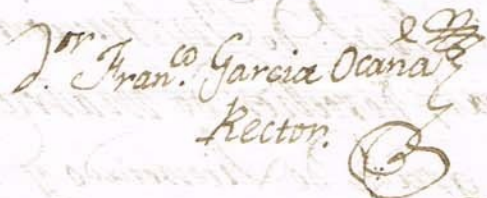 D.ᵒʳ Fran.ᶜᵒ Garcia Ocaña
Rector.